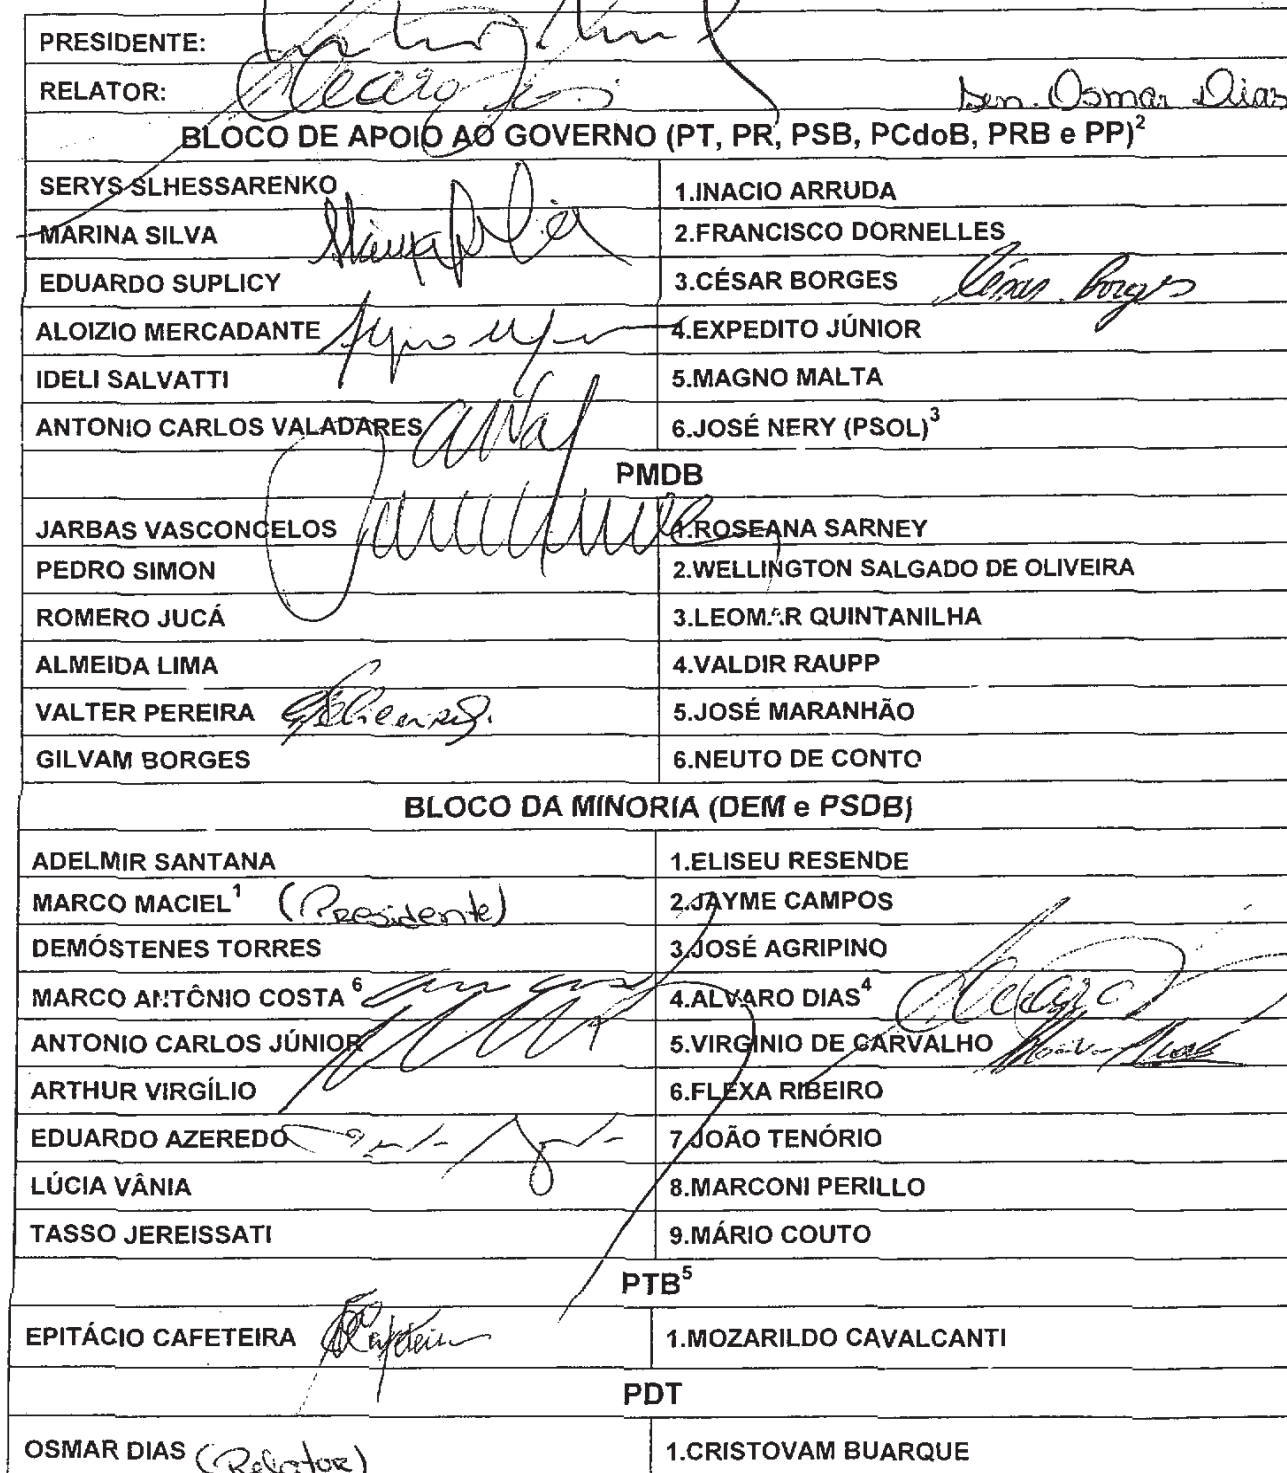 PRESIDENTE:
RELATOR: Sen. Osmar Dias
BLOCO DE APOIO AO GOVERNO (PT, PR, PSB, PCdoB, PRB e PP)²
SERYS SLHESSARENKO 1.INACIO ARRUDA
MARINA SILVA Marina Silva 2.FRANCISCO DORNELLES
EDUARDO SUPLICY 3.CÉSAR BORGES César Borges
ALOIZIO MERCADANTE 4.EXPEDITO JÚNIOR
IDELI SALVATTI 5.MAGNO MALTA
ANTONIO CARLOS VALADARES 6.JOSÉ NERY (PSOL)³
PMDB
JARBAS VASCONCELOS 1.ROSEANA SARNEY
PEDRO SIMON 2.WELLINGTON SALGADO DE OLIVEIRA
ROMERO JUCÁ 3.LEOMAR QUINTANILHA
ALMEIDA LIMA 4.VALDIR RAUPP
VALTER PEREIRA 5.JOSÉ MARANHÃO
GILVAM BORGES 6.NEUTO DE CONTO
BLOCO DA MINORIA (DEM e PSDB)
ADELMIR SANTANA 1.ELISEU RESENDE
MARCO MACIEL¹ (Presidente) 2.JAYME CAMPOS
DEMÓSTENES TORRES 3.JOSÉ AGRIPINO
MARCO ANTÔNIO COSTA⁶ 4.ALVARO DIAS⁴
ANTONIO CARLOS JÚNIOR 5.VIRGÍNIO DE CARVALHO
ARTHUR VIRGÍLIO 6.FLEXA RIBEIRO
EDUARDO AZEREDO 7.JOÃO TENÓRIO
LÚCIA VÂNIA 8.MARCONI PERILLO
TASSO JEREISSATI 9.MÁRIO COUTO
PTB⁵
EPITÁCIO CAFETEIRA Cafeteira 1.MOZARILDO CAVALCANTI
PDT
OSMAR DIAS (Relator) 1.CRISTOVAM BUARQUE